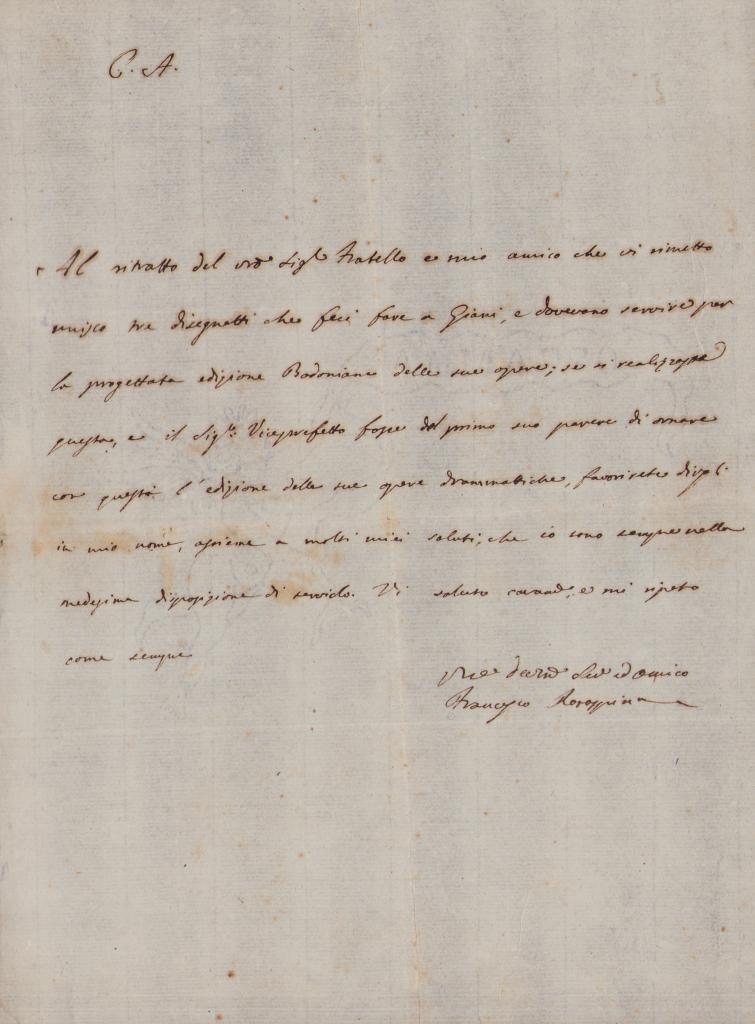 C. A.
Al ritratto del vro Sigr Fratello e mio amico che vi rimetto
unisco tre disegnetti che feci fare a Giani, e dovevano servire per
la progettata edizione Bodoniana delle sue opere; se si realizzasse
questa, e il Sigr. Viceprefetto fosse del primo suo parere di ornare
con questi l'edizione delle sue opere drammatiche, favorirete dirgli
in mio nome, assieme a molti miei saluti, che io sono sempre nella
medesima disposizione di servirlo. Vi saluto caramte, e mi ripeto
come sempre
Devmo Serv ed amico
Francesco Rosaspina